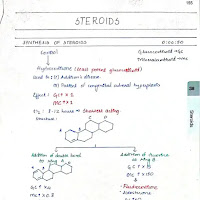 185
STEROIDS
SYNTHESIS OF STEROIDS
0:00:50
Cortisol
Glucocorticoid → GC
Mineralocorticoid → MC
Hydrocortisone (least potent glucocorticoid)
Used in : (i) Addison's disease
(ii) Patient of congenital adrenal hyperplasia
Effect : GC↑ × 1
MC ↑ × 1
t½ : 8-12 hours → Shortest acting.
Structure :
Addition of double bond
in ring A
Addition of fluorine
in ring B
GC ↑ × 4
MC ↑ × 0.8
GC ↑ × 15
MC ↑ × 150
Fludrocortisone
38
Steroids